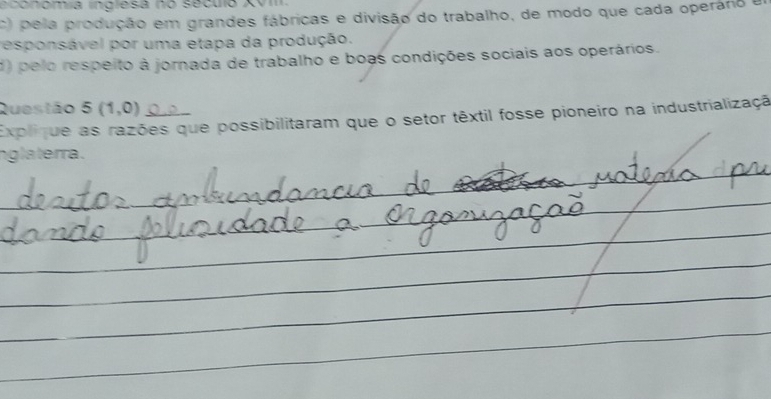 economia inglesa no século XVIII.
c) pela produção em grandes fábricas e divisão do trabalho, de modo que cada operário
responsável por uma etapa da produção.
d) pelo respeito à jornada de trabalho e boas condições sociais aos operários.
Questão 5 (1,0) 0,0
Explique as razões que possibilitaram que o setor têxtil fosse pioneiro na industrializaçã
nglaterra.
ambundancia de materia
dando a organização